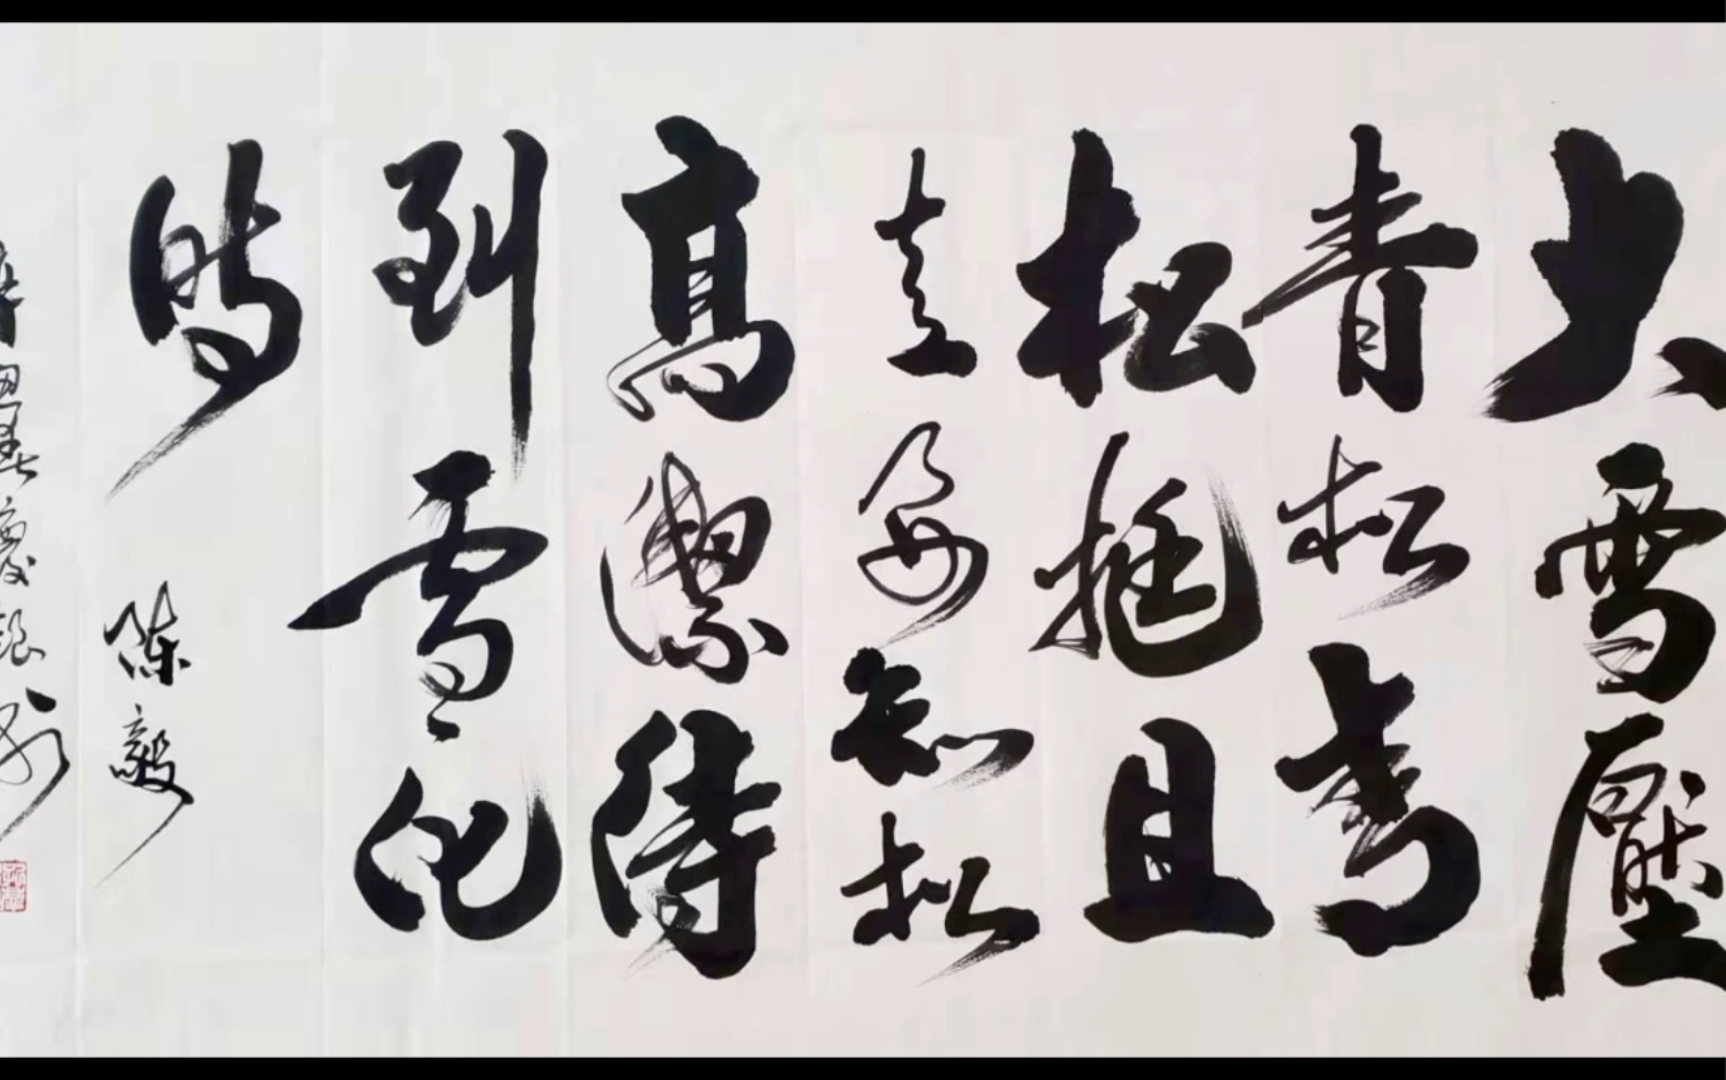 大雪壓
青松青
松挺且
直要知松
高潔待
到雪化
時 陳毅